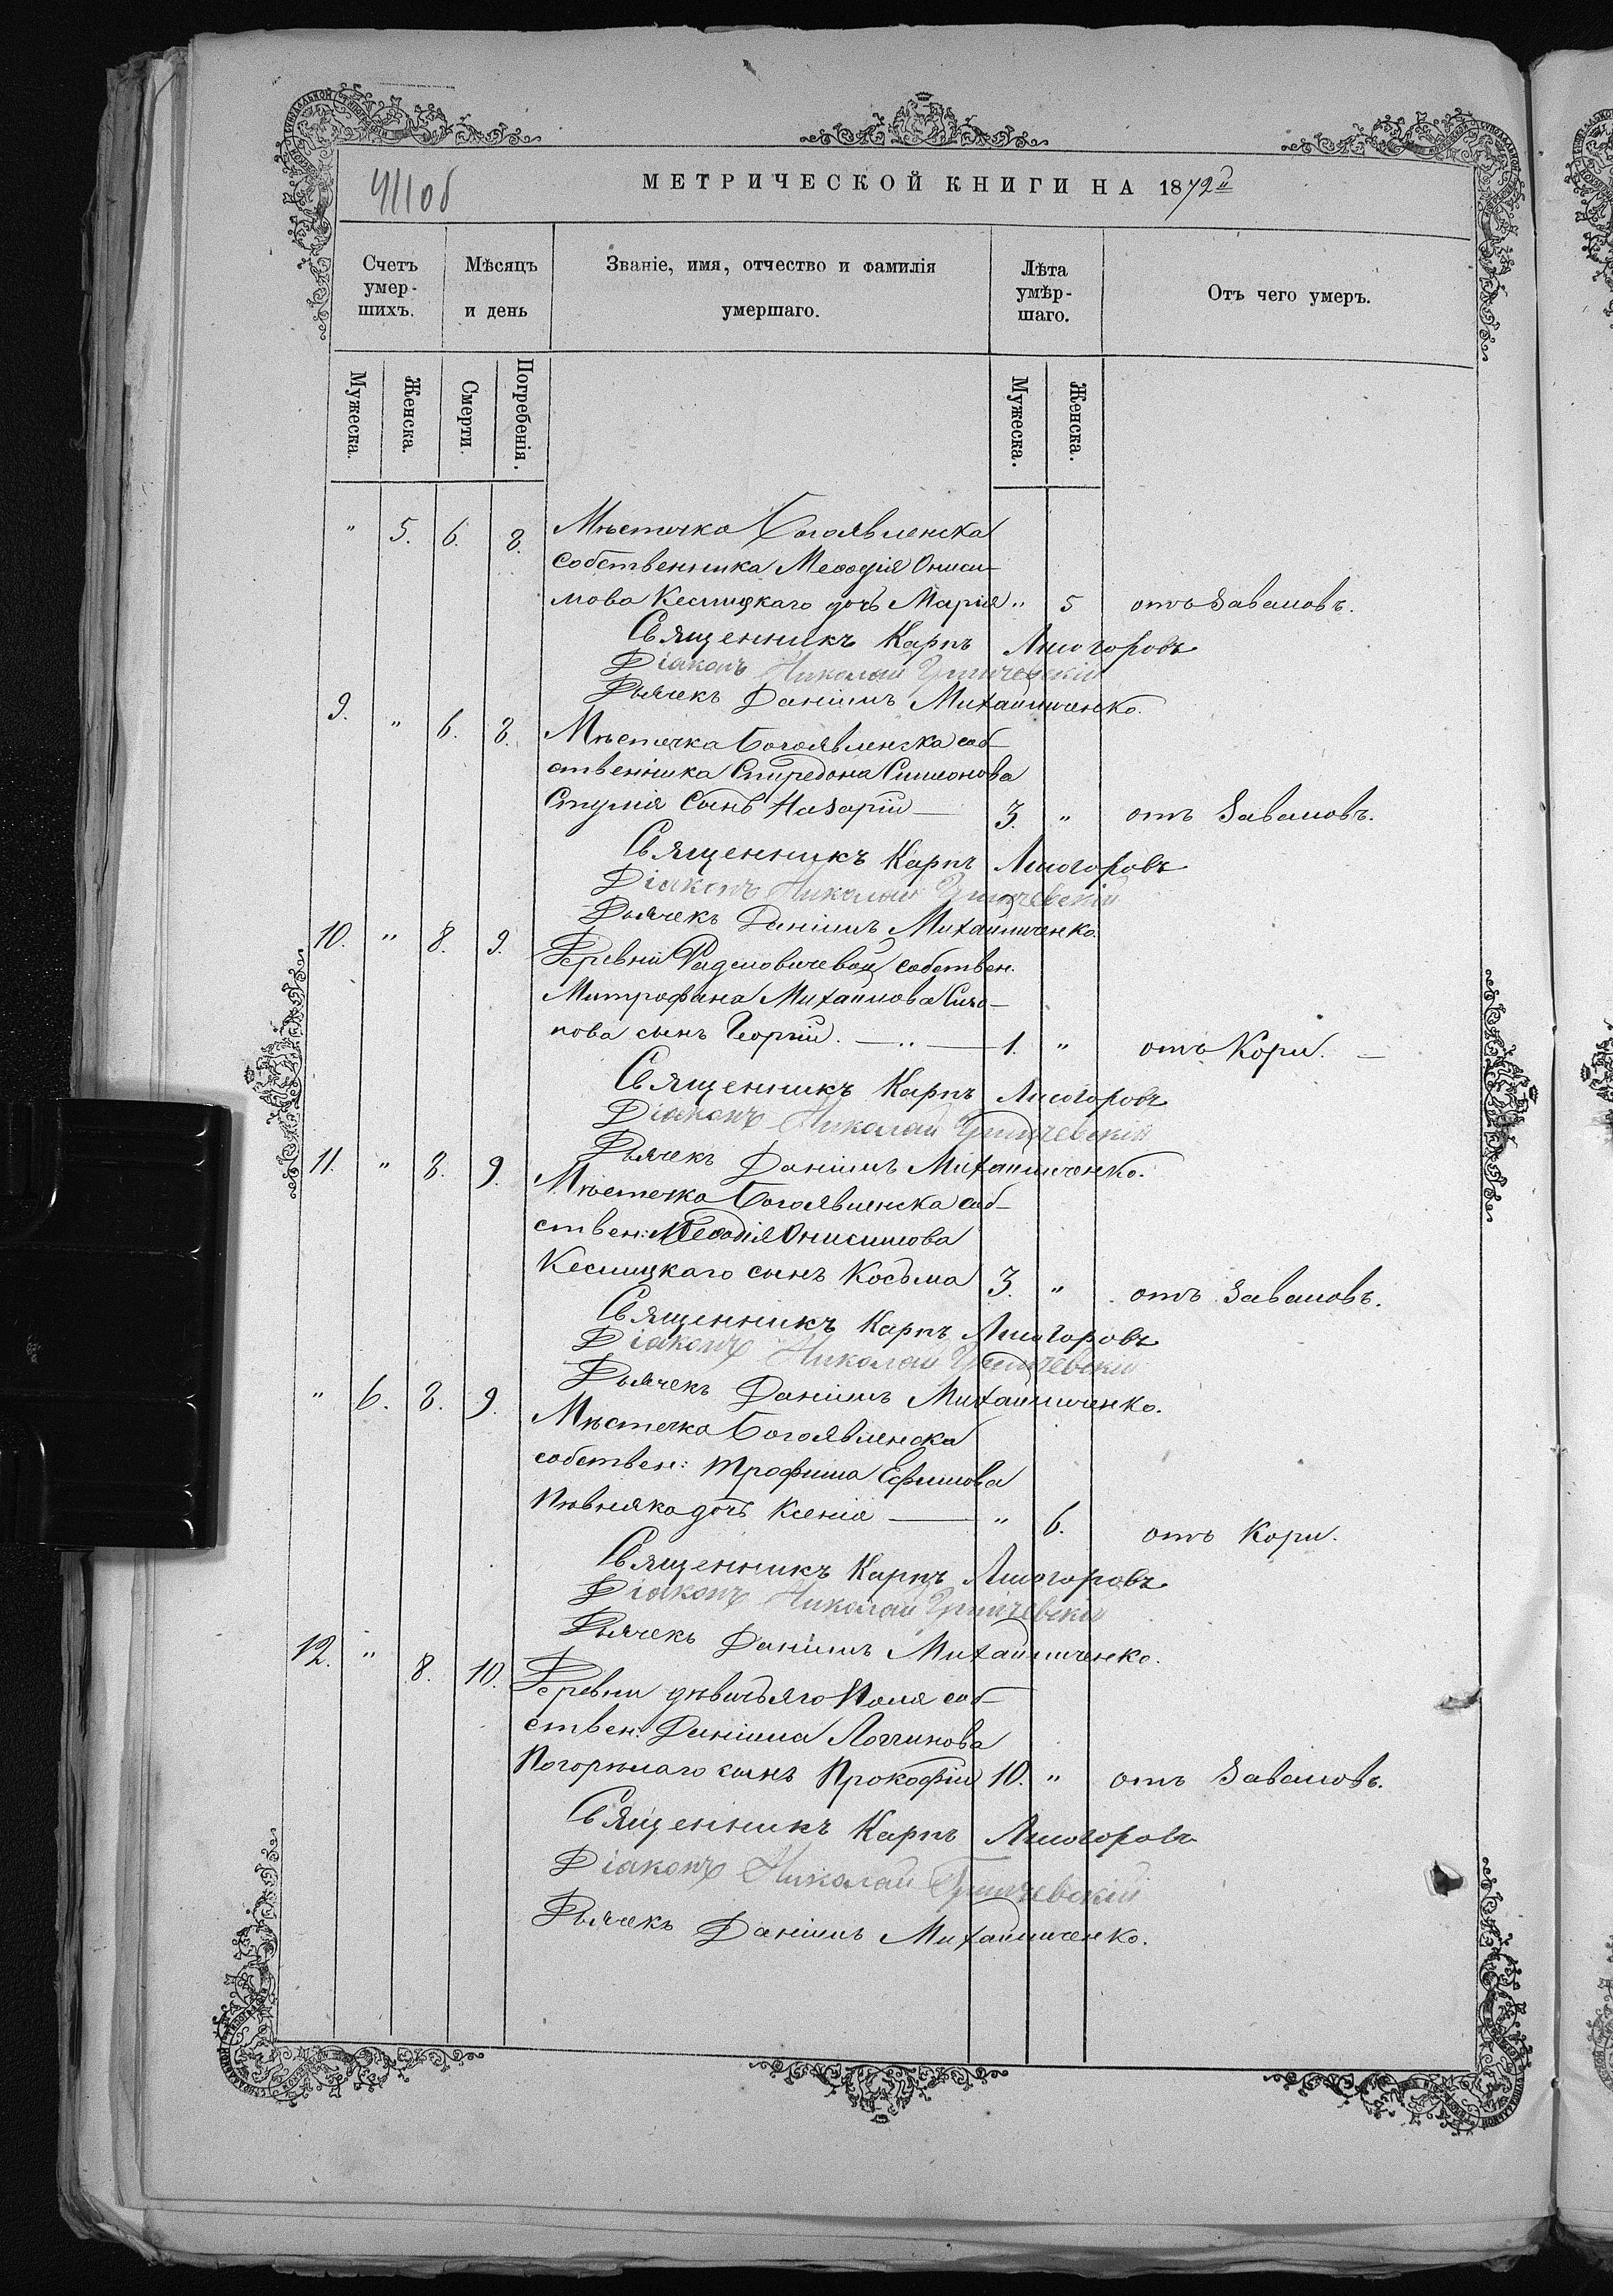 411об
МЕТРИЧЕСКОЙ КНИГИ НА 1872й
Счетъ умер-шихъ.
Мѣсяцъ и день
Званіе, имя, отчество и фамилія умершаго.
Лѣта умѣр-шаго.
Отъ чего умеръ.
Мужеска.
Женска.
Смерти.
Погребенія.
Мужеска.
Женска.
" 5. 6. 8. Мѣстечка Богоявленска
собственника Меѳодія Ониси-
мова Кеслицкаго дочь Марія " 5 отъ Заваловъ.
Священникъ Карпъ Лисогоровъ
Діаконъ Николай
Дьячекъ Даніилъ Михайличенко.
9. " 6. 8. Мѣстечка Богоявленска соб-
ственника Спиредона Симонова
сынъ Назарій 3. " отъ Заваловъ.
Священникъ Карпъ Лисогоровъ
Діаконъ Николай
Дьячекъ Даніилъ Михайличенко.
10. " 8. 9. Деревни собствен.
Митрофана Михайлова
сынъ Георгій. — " — 1. " отъ Кори. —
Священникъ Карпъ Лисогоровъ
Діаконъ Николай
Дьячекъ Даніилъ Михайличенко.
11. " 8. 9. Мѣстечка Богоявленска соб-
ствен: Меѳодія Онисимова
Кеслицкаго сынъ Косьма 3. " отъ Заваловъ.
Священникъ Карпъ Лисогоровъ
Діаконъ Николай
Дьячекъ Даніилъ Михайличенко.
" 6. 8. 9. Мѣстечка Богоявленска
собствен: Трофима Ефимова
Пѣвняка дочь Ксенія — " 6. отъ Кори.
Священникъ Карпъ Лисогоровъ
Діаконъ Николай
Дьячекъ Даніилъ Михайличенко.
12. " 8. 10. Деревни Поля соб-
ствен: Даніила Логгинова
Погорѣлаго сынъ Прокофій 10. " отъ Заваловъ.
Священникъ Карпъ Лисогоровъ
Діаконъ Николай
Дьячекъ Даніилъ Михайличенко.